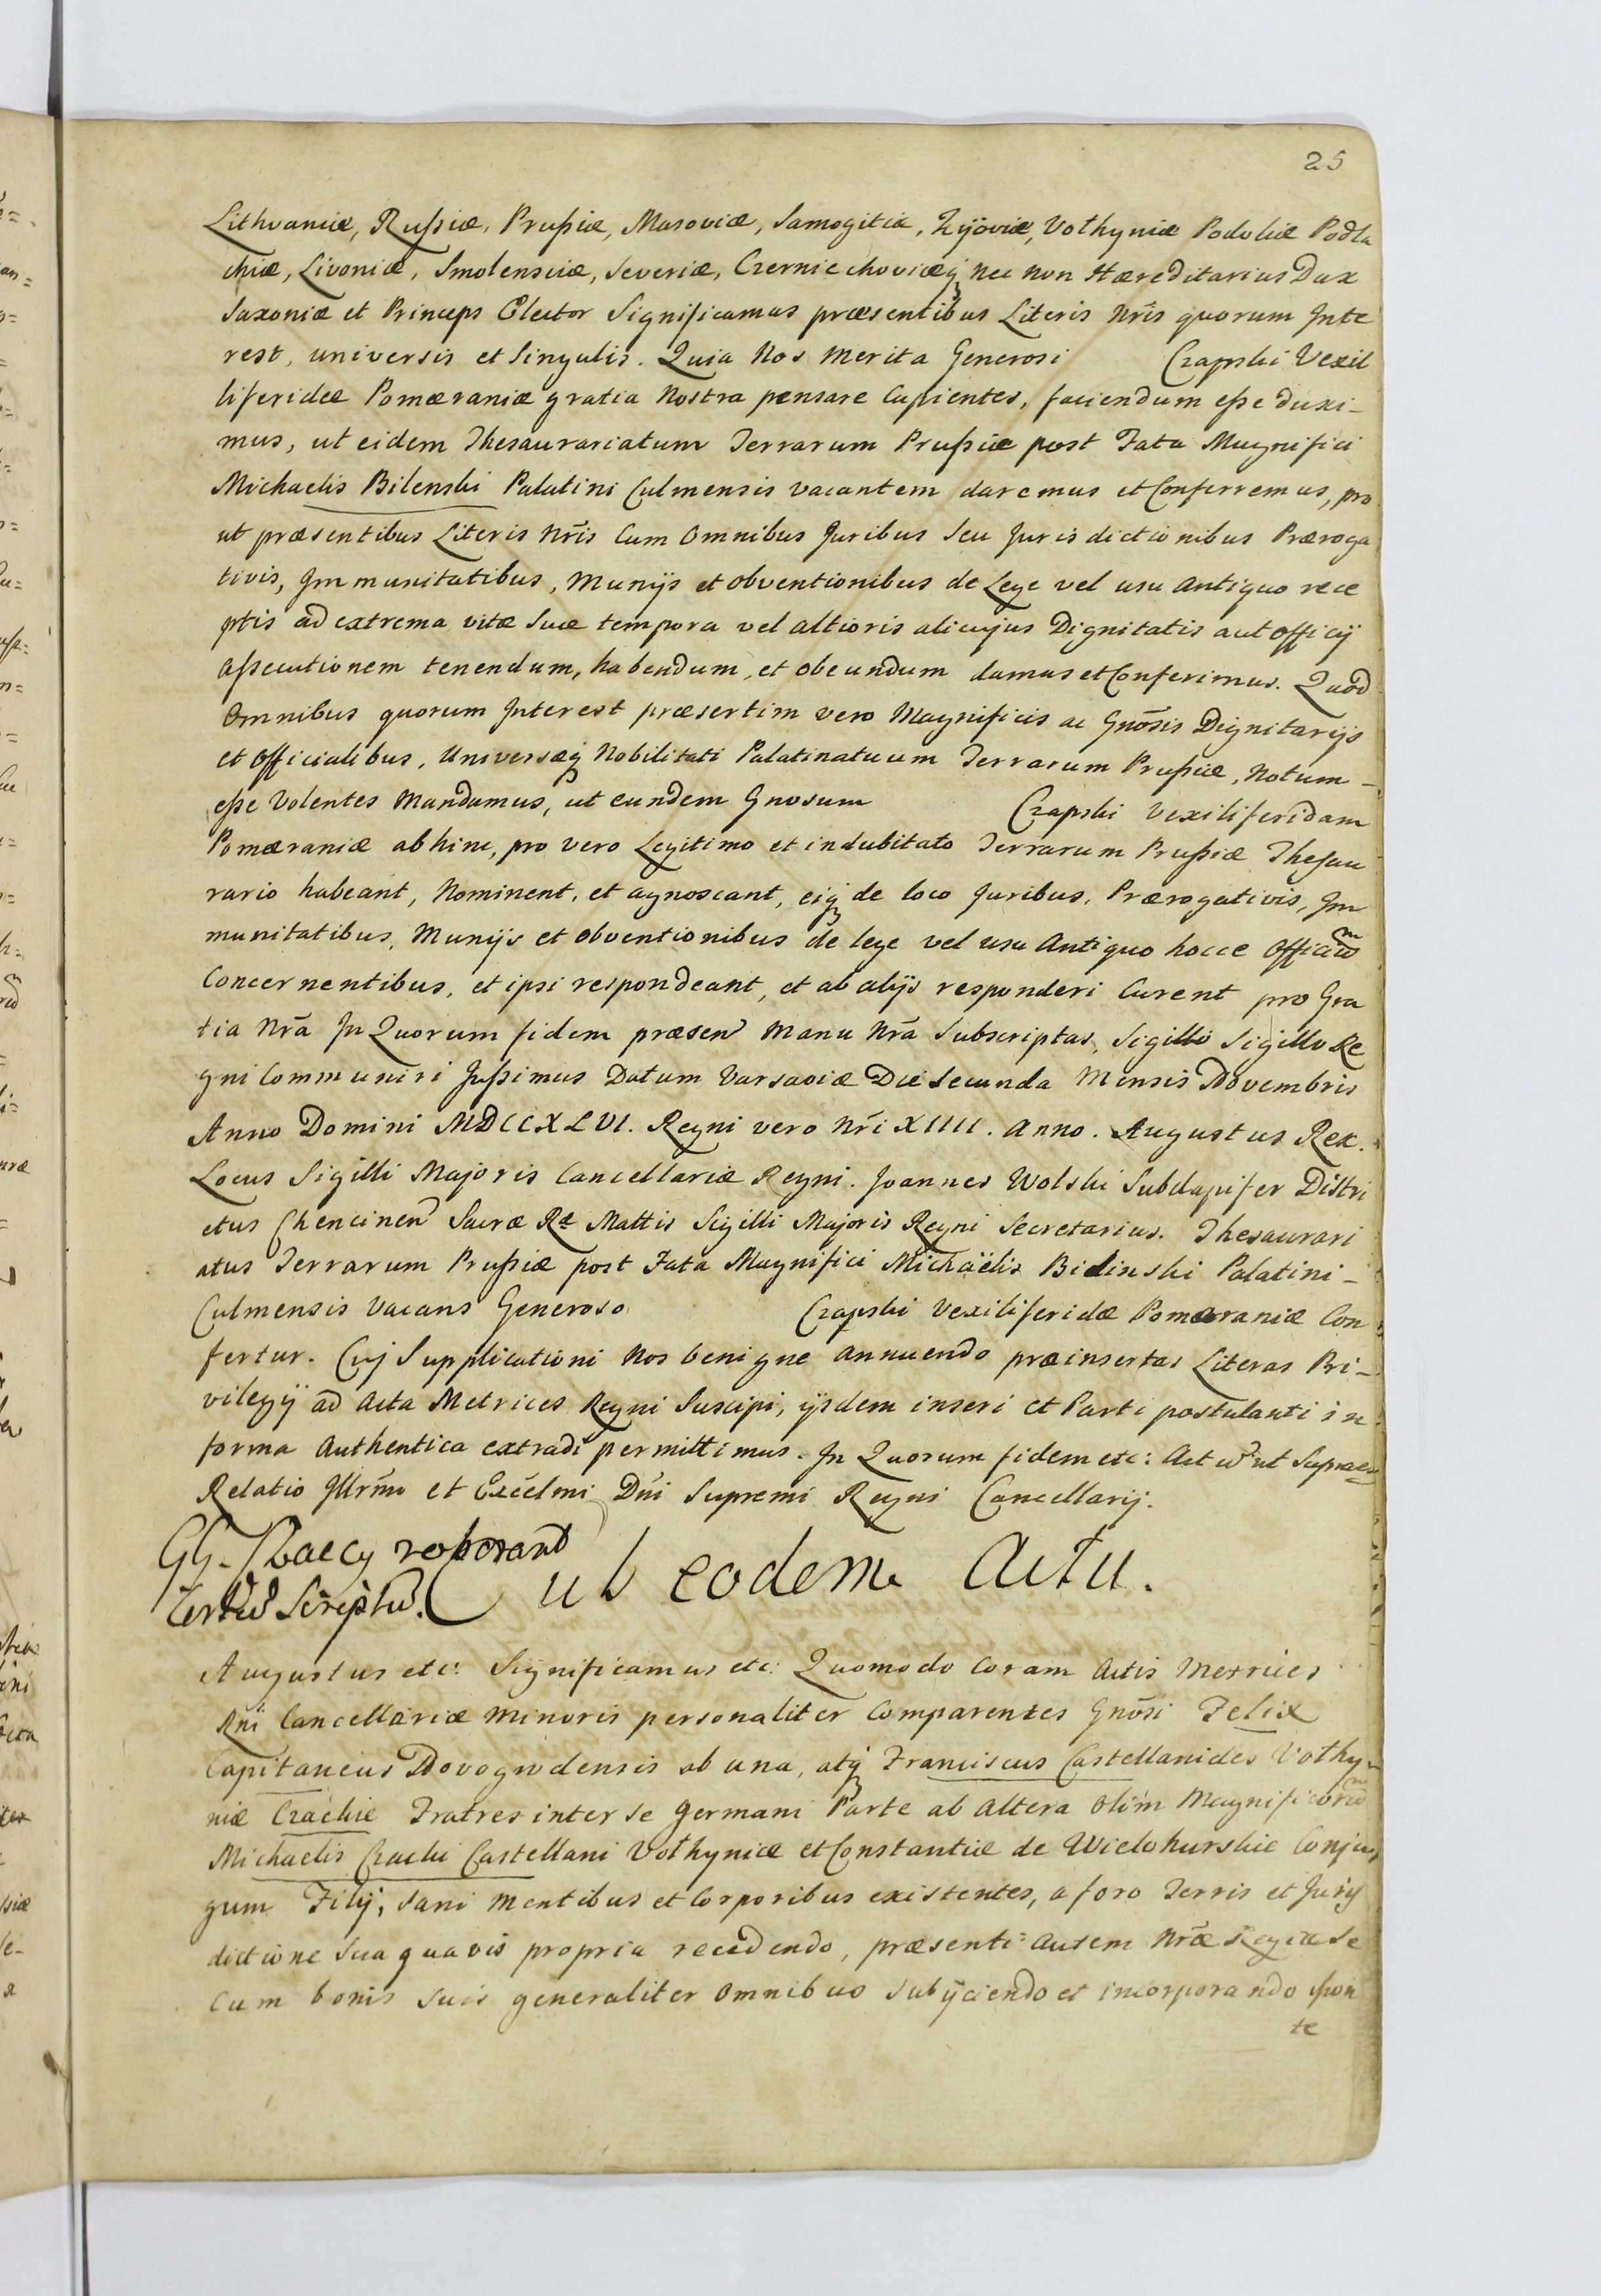 25
Lithvaniæ, Rußiæ, Prußiæ, Masoviæ, Samogitiæ, Kÿoviæ, Volhyniæ Podoliæ Podla
chiæ, Livoniæ, Smolensciæ, Severiæ, Czerniechoviæq́ nec non Hæreditarius Dux
Saxoniæ et Princeps Elector Significamus præsentibus Literis Nr̃is quorum Inte
rest, universis et Singulis. Quia Nos Merita Generosi Czapski Vexil
liferidæ Pomæraniæ gratia Nostra pensare Cupientes, faciendum eße duxi-
mus, ut eidem Thesaurariatum Terrarum Prußiæ post Fata Magnifici
Michaelis Bilenski Palatini Culmensis vacantem daremus et Conferremus, pro
ut præsentibus Literis Nr̃is Cum Omnibus Juribus Seu Juris dictionibus Præroga
tivis, Immunitatibus, Munijs et obventionibus de Lege vel usu Antiquo rece
ptis ad extrema vitæ Suæ tempora vel altioris alicujus Dignitatis aut Officij
aßecutionem tenendum, habendum, et obeundum damus et Conferimus. Quod
Omnibus quorum Interest præsertim vero Magnificis ac Gnõsis Dignitarijs
et Officialibus, Universæq́ Nobilitati Palatinatuum Terrarum Prußiæ, Notum-
eße Volentes Mandamus, ut eundem Gnosum Czapski Vexiliferidam
Pomæraniæ abhinc, pro vero Legitimo et indubitato Terrarum Prußiæ Thesau
rario habeant, Nominent, et agnoscant, eiq́ de loco Juribus, Prærogativis, Im
munitatibus, Munijs et obventionibus de lege vel usu Antiquo hocce Officiũ
Concernentibus, et ipsi respondeant, et ab alijs responderi Curent pro Gra
tia Nr̃a In Quorum fidem præsen̄ Manu Nr̃a Subscriptas, Sigilli Sigillo Re
gni Communiri Jußimus Datum Varsaviæ Die Secunda Mensis Novembris
Anno Domini MDCCXLVI. Regni vero Nr̃i XIIII. Anno. Augustus Rex.
Locus Sigilli Majoris Cancellariæ Regni. Joannes Wolski Subdapifer Distri
ctus Chencinen̄ Sacræ Ræ Mattis Sigilli Majoris Regni Secretarius. Thesaurari
atus Terrarum Prußiæ post Fata Magnifici Michaëlis Bielinski Palatini-
Culmensis Vacans Generoso Czapski Vexiliferidæ Pomæraniæ Con
fertur. Cuj Supplicationi Nos benigne annuendo præinsertas Literas Pri-
vilegij ad Acta Metrices Regni Suscipi, ijsdem inseri et Parti postulanti in
forma Authentica extradi permittimus. In Quorum fidem etc: Act ũ ut Supra
Relatio Illr̃mi et Excēlmi Dn̄i Supremi Regni Cancellarij.
roborant
Scriptũ.
Sub eodem Actu.
Augustus etc: Significamus etc: Quomodo Coram Actis Metrices
Rn̄i Cancellariæ Minoris personaliter Comparentes Gnõsi Felix
Capitaneus Novogrodensis ab una, atq́ Franciscus Castellanides Volhy-
niæ Czackie Fratres inter se germani Parte ab Altera Olim Magnificorũ
Michaelis Czacki Castellani Volhyniæ et Constantiæ de Wielohurskie Conju
gum Filij, Sani Mentibus et Corporibus existentes, a foro Terris et Juris
dictione Sua quavis propria recedendo, præsenti Autem Nr̃æ Regiæ Se
Cum bonis Suis generaliter Omnibus Subijciendo et incorporando spon
te